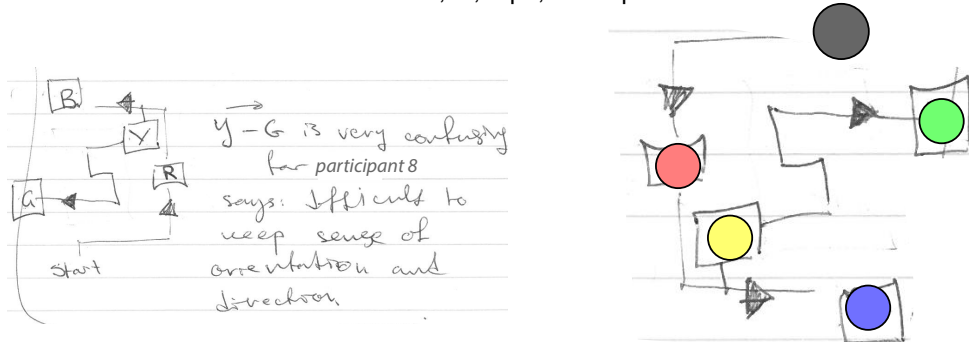 B
Y
R
G
Start
Y - G is very confusing
for participant 8
says: difficult to
keep sense of
orientation and
direction